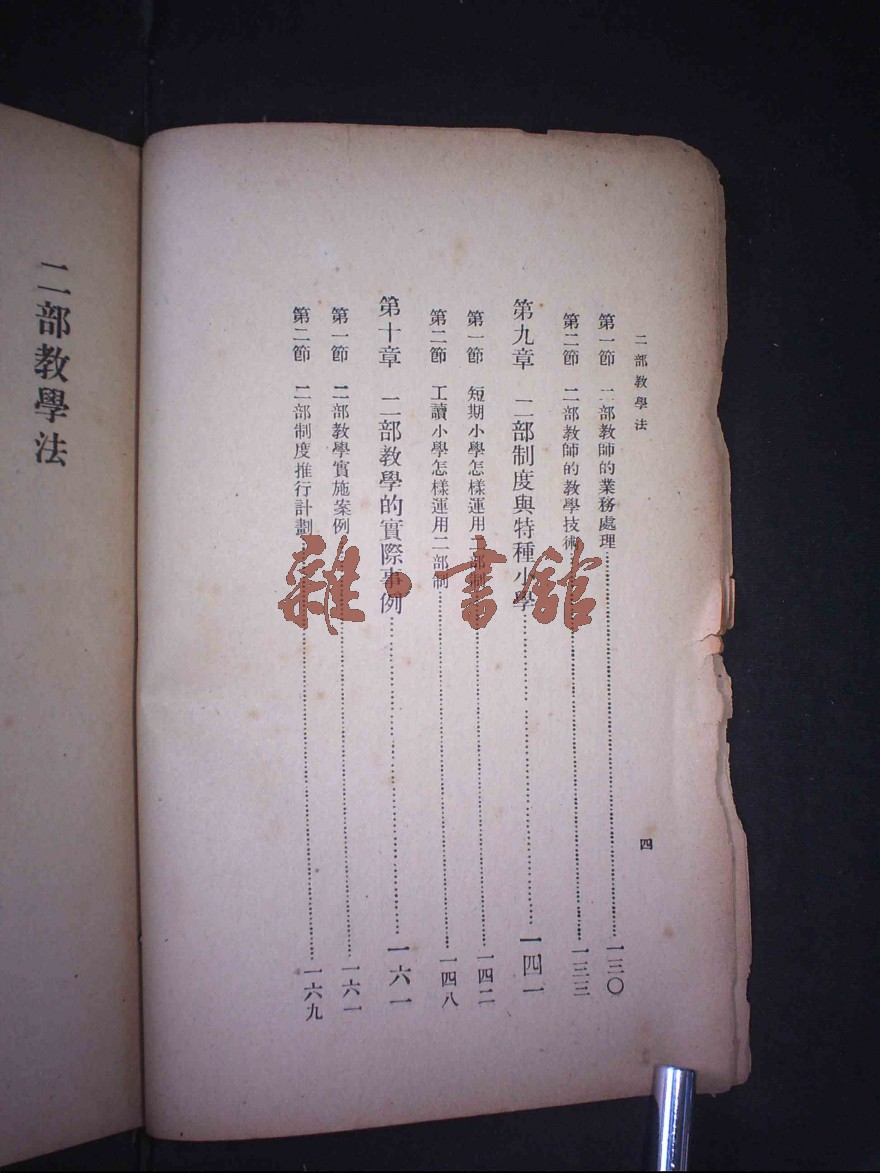 二部教學法
四
第一節　二部教師的業務處理……一三〇
第二節　二部教師的教學技術……一三三
第九章　二部制度與特種小學……一四一
第一節　短期小學怎樣運用二部制……一四二
第二節　工讀小學怎樣運用二部制……一四八
第十章　二部教學的實際事例……一六一
第一節　二部教學實施案例……一六一
第二節　二部制度推行計劃……一六九
二部教學法
雜·書館